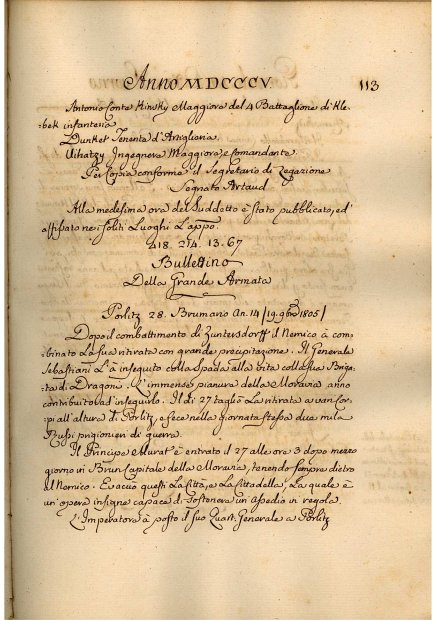 Anno MDCCCV.
113
Antonio Conte Kinsky Maggiore del 4 Battaglione di Kle-
-bek infanteria.
Dunket Tenente d'Artiglieria.
Uihatzy Ingegnere Maggiore, e Comandante.
Per Copia conforme il Segretario di Legazione
Segnato Artaud
Alla medesima ora del Suddetto è stato pubblicato, ed
affissato nei soliti Luoghi L'appo.
418. 214. 13. 67
Bullettino
Della Grande Armata
Porlitz 28. Brumario An. 14 /19. 9bre 1805/
Dopo il combattimento di Zuntersdorff il Nemico à com-
binato La sua ritirata con grande precipitazione. Il Generale
Sebastiani L'à inseguito colla Spada alla vita colla sua Briga-
ta di Dragoni. L'immense pianure della Moravia anno
contribuito ad inseguirlo. Il dì 27 tagliò La ritirata a varj cor-
pi all'altura di Porlitz, e fece nella giornata stessa due mila
Russi prigionieri di guerra.
Il Principe Murat è entrato il 27 alle ore 3 dopo mezzo
giorno in Brun Capitale della Moravia, tenendo sempre dietro
al Nemico. Evacuò questi La Città, e La Cittadella, La quale è
un'opera insigne capace di sostenere un assedio in regola.
L'Imperatore à posto il suo Quart. Generale a Porlitz